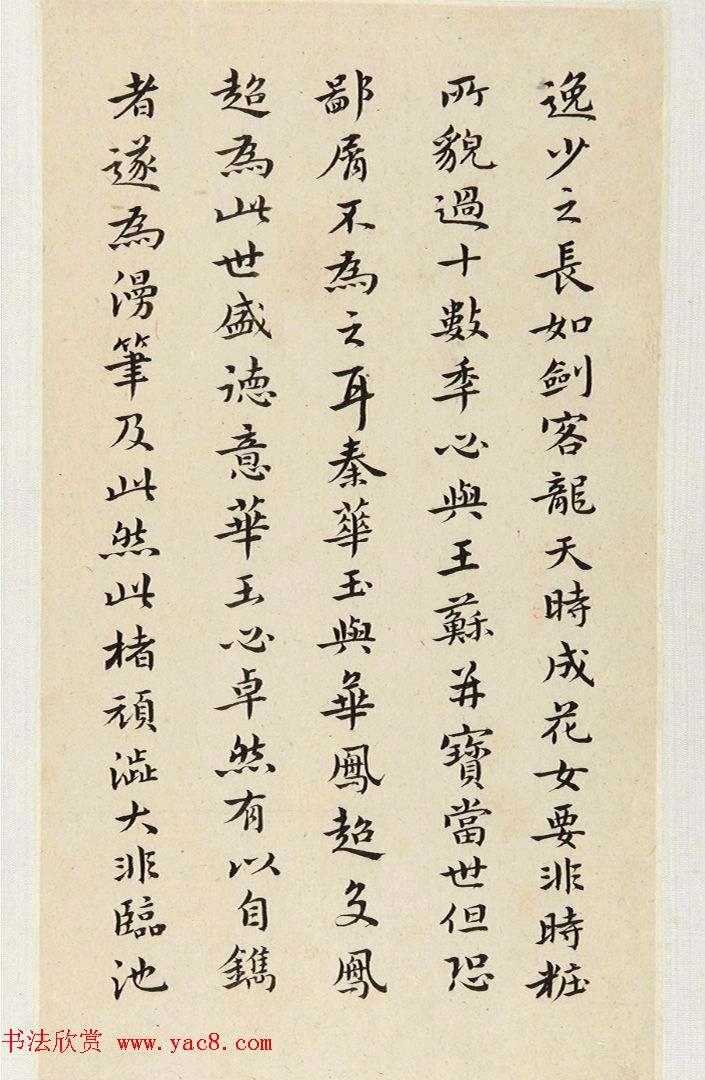 逸少之長如劍客龍天時成花女要非時粧
所貌過十數秊必與王蘇并寶當世但恐
鄙屑不為之耳秦華玉與華鳳超友鳳
超為此世盛德意華玉必卓然有以自鐫
者遂為漫筆及此然此楮頑澁大非臨池
书法欣赏 www.yac8.com